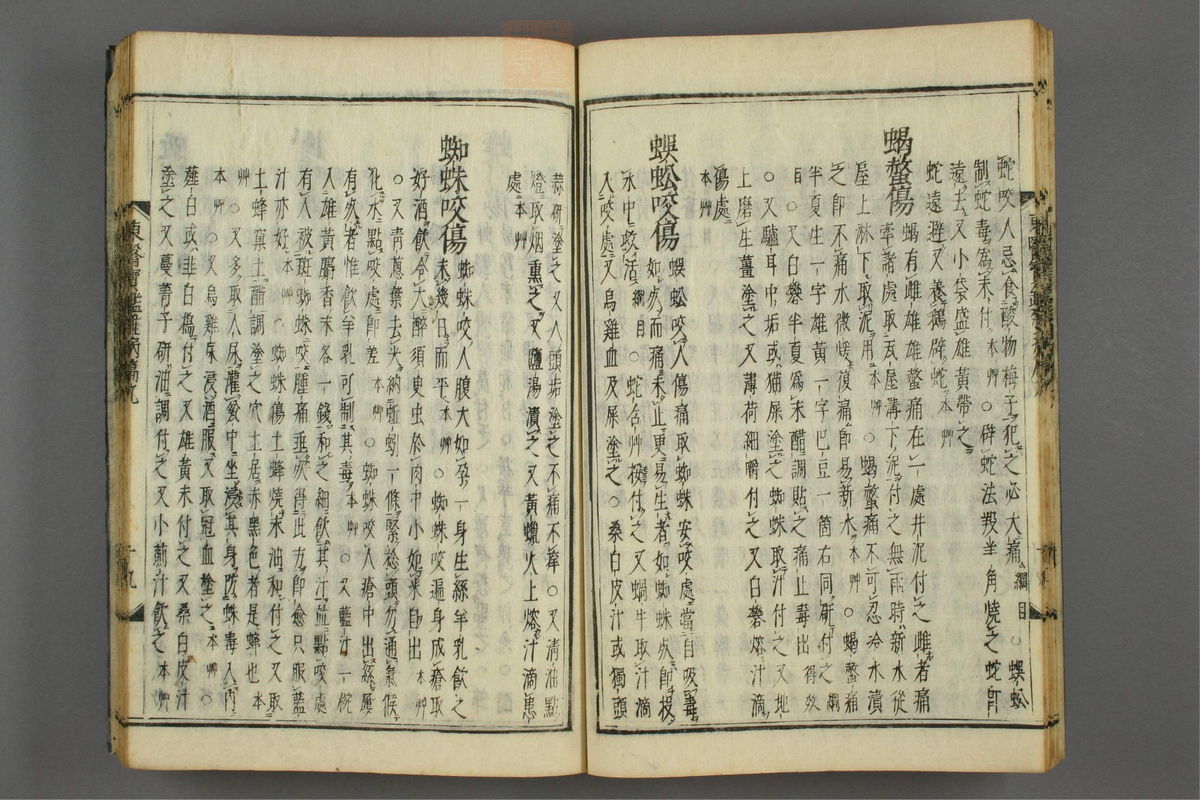 蛇咬人忌食酸物梅子犯之必大痛綱目○蜈蚣
制蛇毒爲末付本艸○辟蛇法羖羊角燒之蛇即
遠去又小袋盛雄黃帶之
蛇遠避又養鵝辟蛇本艸
蝎螫傷
蝎有雌雄雄螫痛在一處井泥付之雌者痛
牽諸處取瓦屋溝下泥付之無雨時新水從
屋上淋下取泥用本艸○蝎螫痛不可忍冷水漬
之即不痛水微煖復痛即易新水本艸○蝎螫痛
半夏生一字雄黃一字巴豆一箇右同硏付之綱
目○又白礬半夏爲末醋調貼之痛止毒出得效
○又驢耳中垢或猫屎塗之蜘蛛取汁付之又地
上磨生薑塗之又薄荷細嚼付之又白礬熔汁滴
傷處
本艸
蜈蚣咬傷
蜈蚣咬人傷痛取蜘蛛安咬處當自吸毒
如死而痛未止更易生者如蜘蛛死即投
水中救活綱目○蛇含艸挼付之又蝸牛取汁滴
入咬處又烏雞血及屎塗之○桑白皮汁或獨頭
蒜硏塗之又人頭垢塗之不痛不痒○又淸油點
燈取烟熏之又鹽湯漬之又黃蠟火上熔汁滴患
處本艸
蜘蛛咬傷
蜘蛛咬人腹大如孕一身生絲羊乳飮之
未幾日而平本艸○蜘蛛咬遍身成瘡取
好酒飮令大醉須臾虫於肉中小如米自出本艸
○又靑蔥葉去尖納蚯蚓一條緊捻頭勿通氣候
化水點咬處即差本艸○蜘蛛咬人瘡中出絲屢
有死者惟飮羊乳可制其毒本艸○又藍汁一椀
入雄黃麝香末各一錢和之細飮其汁並點咬處
有人被斑蜘蛛咬腫痛垂死得此方即愈只服藍
汁亦好本艸○蜘蛛傷土蜂燒末油和付之又取
土蜂窠土醋調塗之穴土居赤黑色者是蜂也本
艸○又多取人尿灌瓮中坐浸其身防蛛毒入內
本艸○又烏雞屎浸酒服又取冠血塗之本艸○
薤白或韭白搗付之又雄黃末付之又桑白皮汁
塗之又蔓菁子硏油調付之又小薊汁飮之本艸
東醫寶鑑雜病篇九
十九